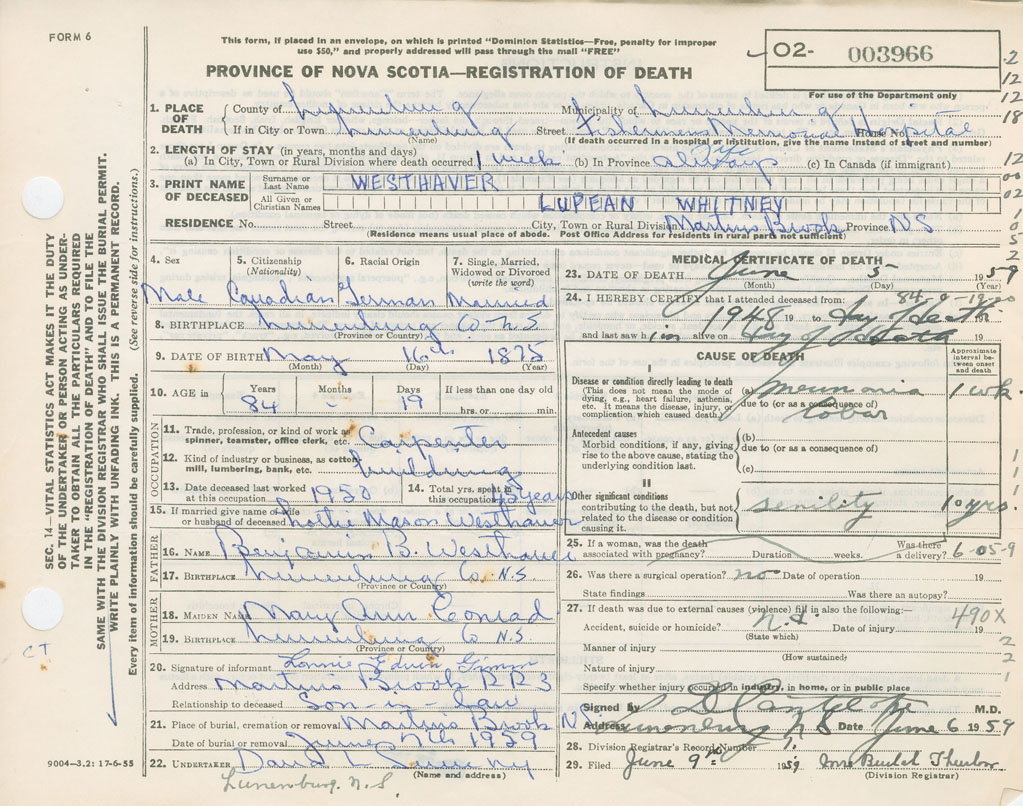 FORM 6
This form, if placed in an envelope, on which is printed "Dominion Statistics—Free, penalty for improper
use $50," and properly addressed will pass through the mail "FREE"
PROVINCE OF NOVA SCOTIA—REGISTRATION OF DEATH
02- 003966
For use of the Department only
2
12
12
18
12
00
02
1
0
5
2
1. PLACE OF DEATH
County of Lunenburg Municipality of Lunenburg
If in City or Town Lunenburg Street Fishermens Memorial Hospital House No.
(Name) (If death occurred in a hospital or institution, give the name instead of street and number)
2. LENGTH OF STAY (in years, months and days)
(a) In City, Town or Rural Division where death occurred 1 week (b) In Province (c) In Canada (if immigrant)
3. PRINT NAME OF DECEASED
Surname or Last Name WESTHAVER
All Given or Christian Names LUPEAN WHITNEY
RESIDENCE No. Street City, Town or Rural Division Martins Brook Province NS
(Residence means usual place of abode. Post Office Address for residents in rural parts not sufficient)
4. Sex
5. Citizenship (Nationality)
6. Racial Origin
7. Single, Married, Widowed or Divorced (write the word)
Male Canadian German Married
8. BIRTHPLACE Lunenburg Co. N.S
(Province or Country)
9. DATE OF BIRTH May 16th 1875
(Month) (Day) (Year)
10. AGE in
Years Months Days If less than one day old
84 - 19 hrs. or min.
OCCUPATION
11. Trade, profession, or kind of work as spinner, teamster, office clerk, etc. Carpenter
12. Kind of industry or business, as cotton-mill, lumbering, bank, etc. building
13. Date deceased last worked at this occupation 1950
14. Total yrs. spent in this occupation 45 years
15. If married give name of wife or husband of deceased Lottie Mason Westhaver
FATHER
16. NAME Benjamin B. Westhaver
17. BIRTHPLACE Lunenburg Co. N.S
(Province or Country)
MOTHER
18. MAIDEN NAME Mary Ann Conrad
19. BIRTHPLACE Lunenburg Co N.S
(Province or Country)
20. Signature of informant Lonnie Edwin
Address Martins Brook RR3
Relationship to deceased Son-in-law
21. Place of burial, cremation or removal Martins Brook N.S.
Date of burial or removal June 7th 1959
22. UNDERTAKER David
(Name and address)
Lunenburg. N.S.
9004—3.2: 17-6-55
MEDICAL CERTIFICATE OF DEATH
23. DATE OF DEATH June 5 1959
(Month) (Day) (Year)
24. I HEREBY CERTIFY that I attended deceased from:
84-0-19
1948 19 to day of death 19
and last saw him alive on day of death 19
CAUSE OF DEATH
Approximate interval between onset and death
I
Disease or condition directly leading to death
(This does not mean the mode of dying, e.g., heart failure, asthenia, etc. It means the disease, injury, or complication which caused death)
(a) Pneumonia 1 wk.
due to (or as a consequence of)
Lobar
Antecedent causes
Morbid conditions, if any, giving rise to the above cause, stating the underlying condition last.
(b)
due to (or as a consequence of)
(c)
II
Other significant conditions
contributing to the death, but not related to the disease or condition causing it.
senility 10 yrs.
25. If a woman, was the death associated with pregnancy? Duration weeks. Was there a delivery?
6-05-9
26. Was there a surgical operation? no Date of operation 19
State findings Was there an autopsy?
27. If death was due to external causes (violence) fill in also the following:—
490X
Accident, suicide or homicide? Date of injury 19
(State which)
Manner of injury
(How sustained)
Nature of injury
Specify whether injury occurred in industry, in home, or in public place
Signed By M.D.
Address Lunenburg N S Date June 6 1959
28. Division Registrar's Record Number
29. Filed June 9th 1959 Mrs Thurlow
(Division Registrar)
1
1
1
1
2
2
1
SEC. 14—VITAL STATISTICS ACT MAKES IT THE DUTY
OF THE UNDERTAKER OR PERSON ACTING AS UNDER-
TAKER TO OBTAIN ALL THE PARTICULARS REQUIRED
IN THE "REGISTRATION OF DEATH" AND TO FILE THE
SAME WITH THE DIVISION REGISTRAR WHO SHALL ISSUE THE BURIAL PERMIT.
WRITE PLAINLY WITH UNFADING INK. THIS IS A PERMANENT RECORD.
Every item of information should be carefully supplied. (See reverse side for instructions.)
CT